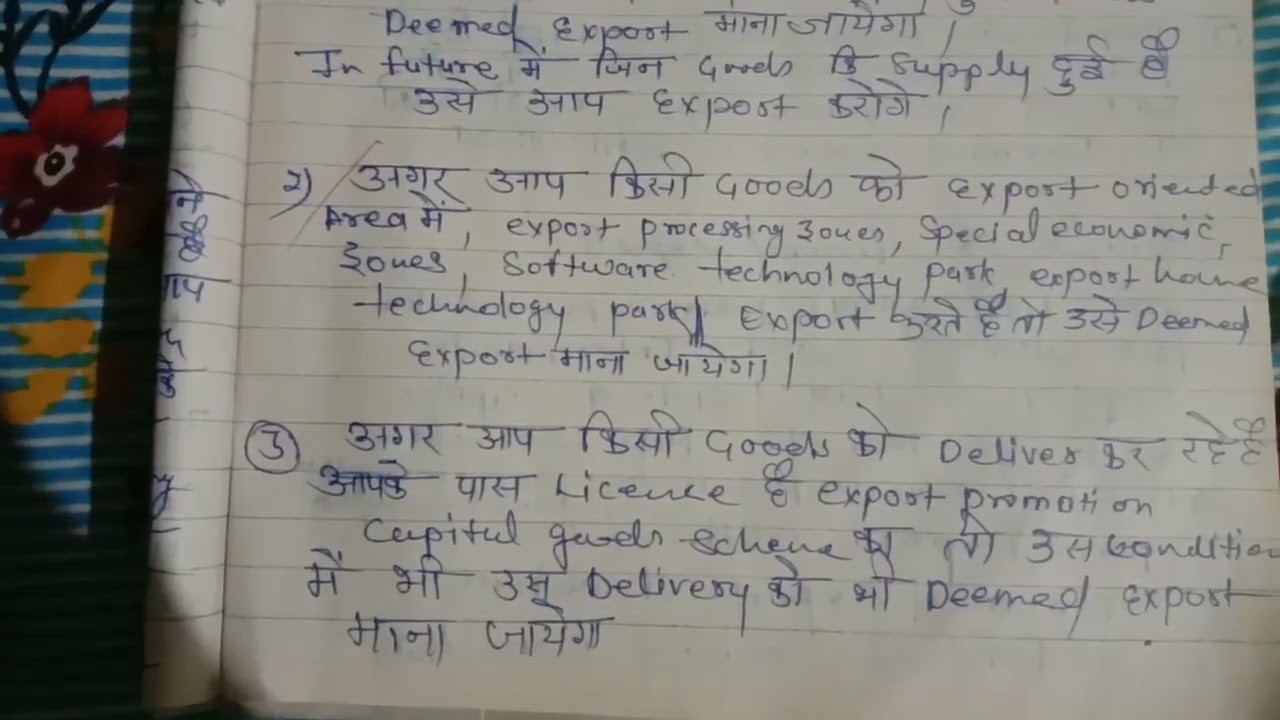 Deemed Export माना जायेगा ।
In future में जिन Goods कि Supply हुई है
उसे आप Export करोगे ।
2) अगर आप किसी Goods को Export oriented
Area में, export processing zones, Special economic,
zones, Software technology park, export home
technology park Export करते है तो उसे Deemed
Export माना जायेगा ।
3 अगर आप किसी Goods को Deliver कर रहे है
आपके पास Licence है export promotion
Capital goods scheme का तो उस condition
में भी उस Delivery को भी Deemed Export
माना जायेगा